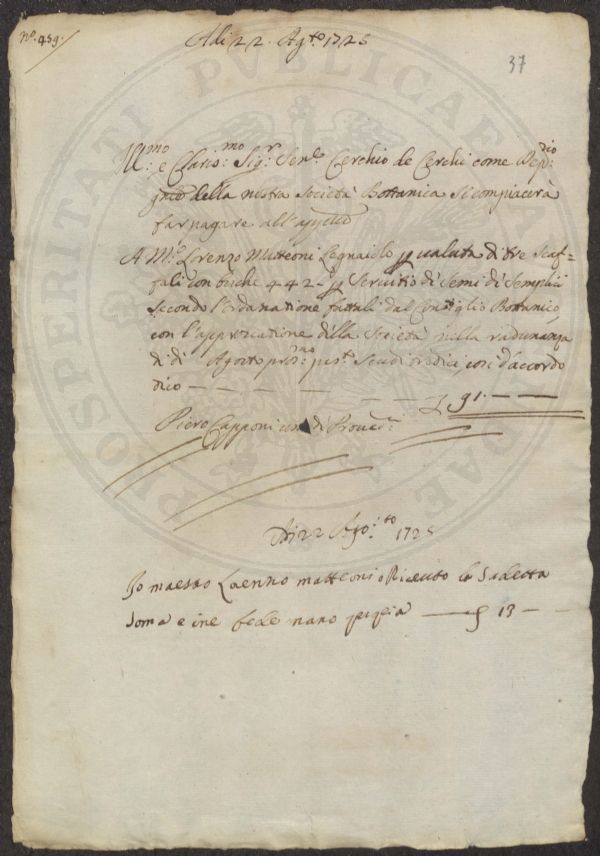 N.° 459.
Adi 22. Ag.to 1725
37
Ill.mo e Clariss.mo Sig.r Sen.e Cerchio de Cerchi come Dep.
della nostra Società Bottanica si compiacerà
far pagare all'app.to
A M.o Lorenzo Matteoni Legnaiolo p valuta di tre scaf=
fali con bache 442 - p Servitio di Semi di Semplici
Secondo l'ordinatione fattali dal Consiglio Bottanico
con l'approvatione della Società nella radunanza
di di Agosto pros.mo pas.to Scudi tredici, cosi d'accordo
dico — — — — — — 91 — —
Piero Capponi uno di Proved.ri
Adi 22 Ago.to 1725
Io maestro Lorenzo matteoni o Riceuto la Sudetta
Soma e in fede mano propria — 13 —
PROSPERITATI PVBLICAE